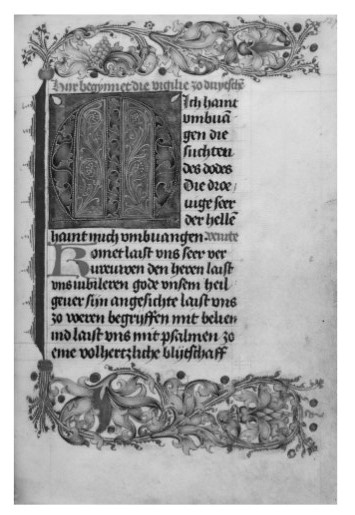 Hur begynnet die vigilie zo duytsche
Mich haint
vmbuā
gen die
suchten
des dodes
Die droe
uige seer
der hellē
haint mich vmbuangen venite
Komet laist vns seer ver
ureuwen den heren laist
vns iubileren gode vnsem heil
geuer sijn angesichte laist vns
zo voeren begryffen mit belien
ind laist vns mit psalmen zo
eme volhertzliche blijtschaff